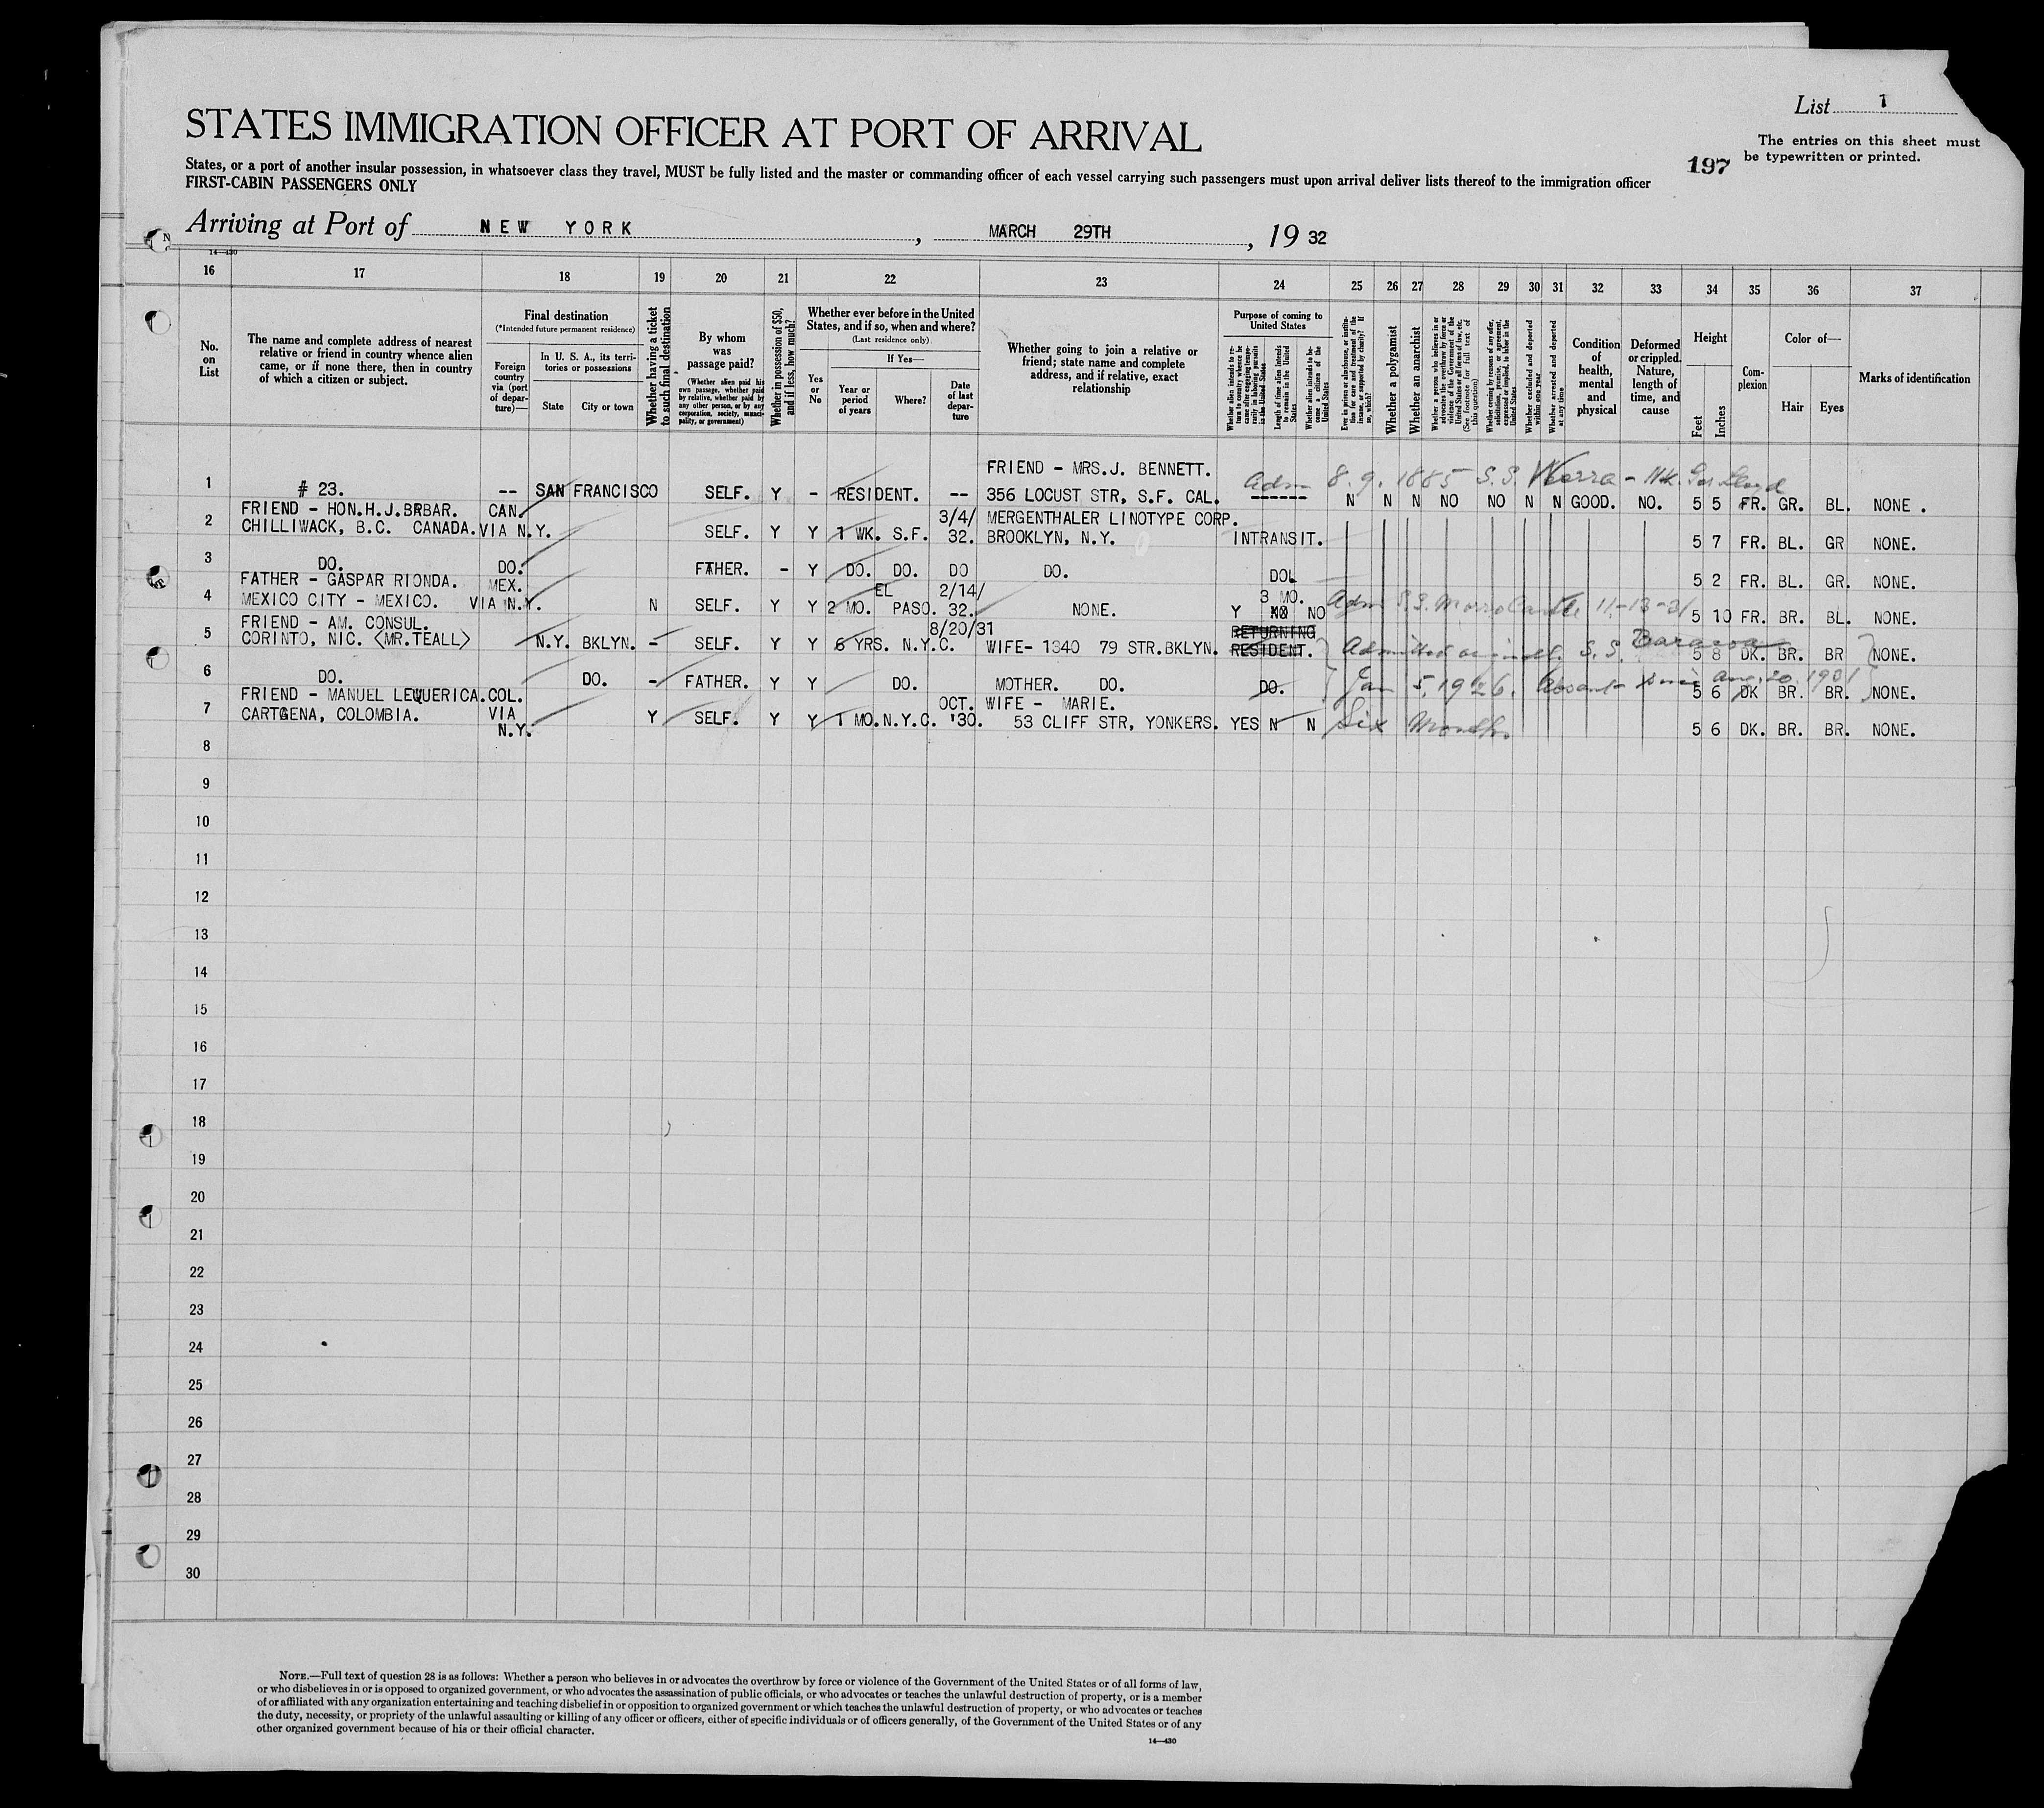 List 1
STATES IMMIGRATION OFFICER AT PORT OF ARRIVAL
The entries on this sheet must
be typewritten or printed.
197
States, or a port of another insular possession, in whatsoever class they travel, MUST be fully listed and the master or commanding officer of each vessel carrying such passengers must upon arrival deliver lists thereof to the immigration officer
FIRST-CABIN PASSENGERS ONLY
Arriving at Port of NEW YORK, MARCH 29TH, 19 32
14—430
16 17 18 19 20 21 22 23 24 25 26 27 28 29 30 31 32 33 34 35 36 37
No. on List
The name and complete address of nearest
relative or friend in country whence alien
came, or if none there, then in country
of which a citizen or subject.
Final destination
(*Intended future permanent residence)
Foreign country via (port of departure)—
In U. S. A., its territories or possessions
State
City or town
Whether having a ticket to such final destination
By whom was passage paid?
(Whether alien paid his own passage, whether paid by relative, whether paid by any other person, or by any corporation, society, municipality, or government)
Whether in possession of $50, and if less, how much?
Whether ever before in the United States, and if so, when and where?
(Last residence only)
Yes or No
If Yes—
Year or period of years
Where?
Date of last departure
Whether going to join a relative or
friend; state name and complete
address, and if relative, exact
relationship
Purpose of coming to United States
Whether alien intends to return to country whence he came after engaging temporarily in laboring pursuits in the United States
Length of time alien intends to remain in the United States
Whether alien intends to become a citizen of the United States
Ever in prison or almshouse, or institution for care and treatment of the insane, or supported by charity? If so, which?
Whether a polygamist
Whether an anarchist
Whether a person who believes in or advocates the overthrow by force or violence of the Government of the United States or all forms of law, etc. (See footnote for full text of this question)
Whether coming by reasons of any offer, solicitation, promise, or agreement, expressed or implied, to labor in the United States
Whether excluded and deported within one year
Whether arrested and deported at any time
Condition of health, mental and physical
Deformed or crippled. Nature, length of time, and cause
Height
Feet
Inches
Complexion
Color of—
Hair
Eyes
Marks of identification
FRIEND - MRS.J. BENNETT.
Adm 8.9.1885 S.S. Werra
1 # 23. -- SAN FRANCISCO SELF. Y - RESIDENT. -- 356 LOCUST STR, S.F. CAL. ------ N N N NO NO N N GOOD. NO. 5 5 FR. GR. BL. NONE .
FRIEND - HON.H.J.BRBAR. CAN. 3/4/ MERGENTHALER LINOTYPE CORP.
2 CHILLIWACK, B.C. CANADA. VIA N.Y. SELF. Y Y 1 WK. S.F. 32. BROOKLYN, N.Y. INTRANSIT. 5 7 FR. BL. GR NONE.
3 DO. DO. FATHER. - Y DO. DO. DO DO. DO. 5 2 FR. BL. GR. NONE.
FATHER - GASPAR RIONDA. MEX. EL 2/14/ 3 MO.
4 MEXICO CITY - MEXICO. VIA N.Y. N SELF. Y Y 2 MO. PASO. 32. NONE. Y NO NO Adm S.S. Morro Castle 11-13-31 5 10 FR. BR. BL. NONE.
FRIEND - AM. CONSUL. 8/20/31 RETURNING
5 CORINTO, NIC. (MR.TEALL) N.Y. BKLYN. - SELF. Y Y 6 YRS. N.Y.C. WIFE- 1340 79 STR.BKLYN. RESIDENT. Admitted originally S.S. Baracoa 5 8 DK. BR. BR NONE.
6 DO. DO. - FATHER. Y Y DO. MOTHER. DO. DO. Jan 5, 1926. Absent since Aug. 20. 1931 5 6 DK BR. BR. NONE.
FRIEND - MANUEL LEQUERICA. COL. OCT. WIFE - MARIE.
7 CARTGENA, COLOMBIA. VIA N.Y. Y SELF. Y Y 1 MO. N.Y.C. '30. 53 CLIFF STR, YONKERS. YES N N Six Months 5 6 DK. BR. BR. NONE.
8
9
10
11
12
13
14
15
16
17
18
19
20
21
22
23
24
25
26
27
28
29
30
NOTE.—Full text of question 28 is as follows: Whether a person who believes in or advocates the overthrow by force or violence of the Government of the United States or of all forms of law,
or who disbelieves in or is opposed to organized government, or who advocates the assassination of public officials, or who advocates or teaches the unlawful destruction of property, or is a member
of or affiliated with any organization entertaining and teaching disbelief in or opposition to organized government or which teaches the unlawful destruction of property, or who advocates or teaches
the duty, necessity, or propriety of the unlawful assaulting or killing of any officer or officers, either of specific individuals or of officers generally, of the Government of the United States or of any
other organized government because of his or their official character.
14—430